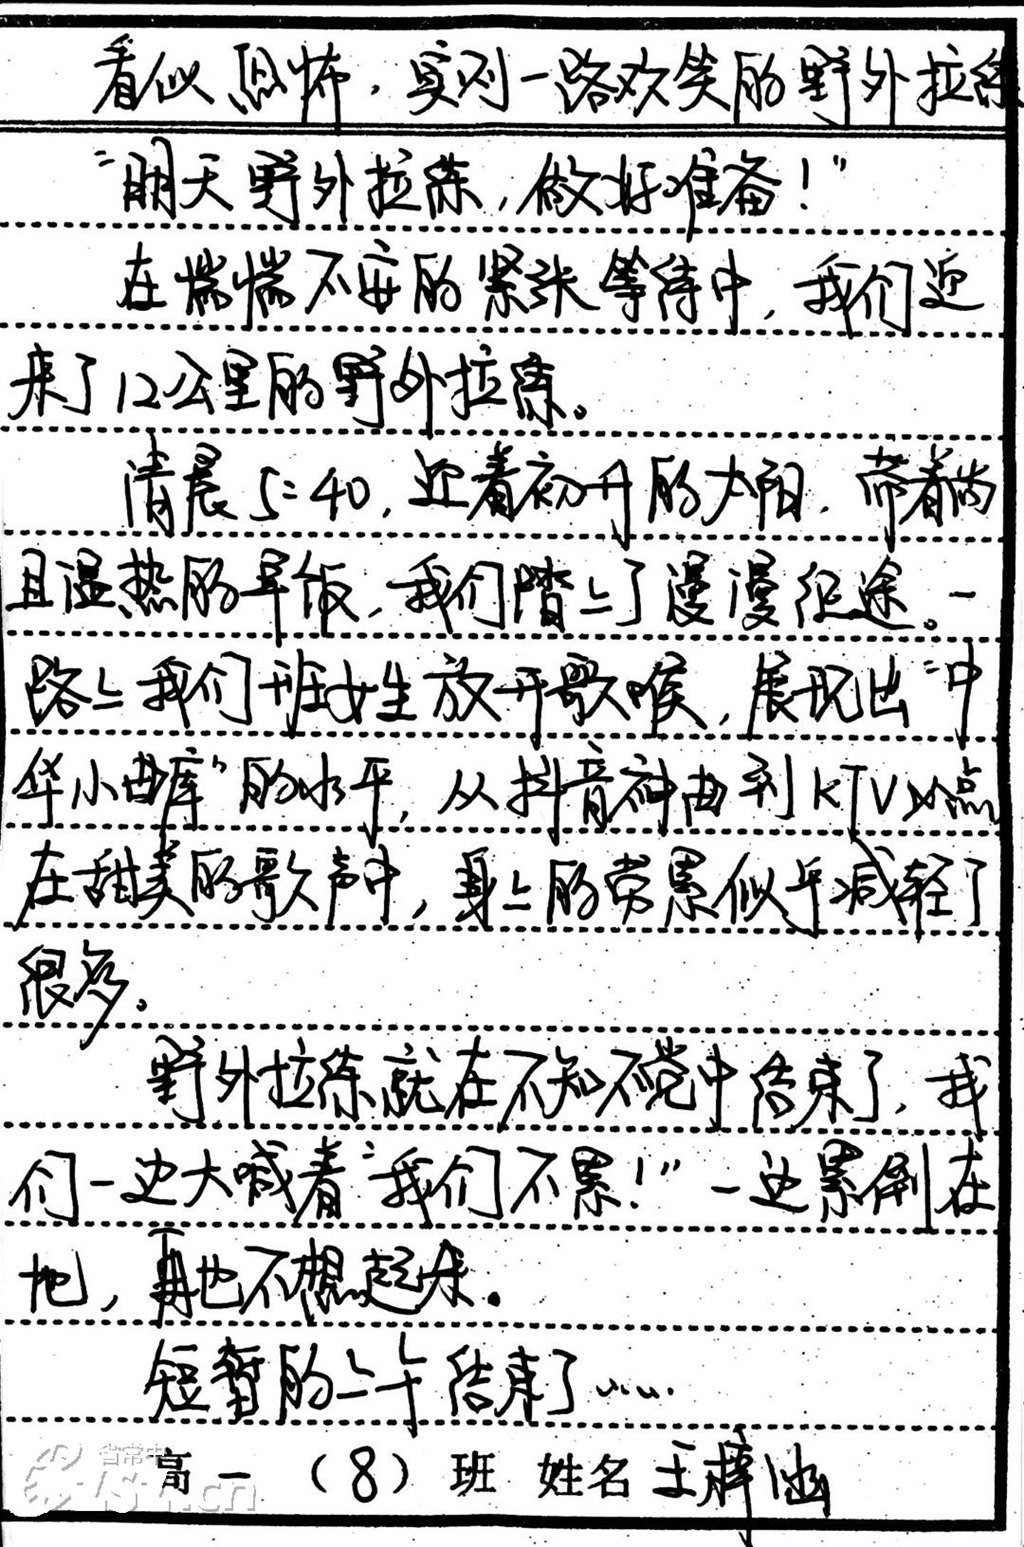 看似恐怖，实则一路欢笑的野外拉练
“明天野外拉练，做好准备！”
在惴惴不安的紧张等待中，我们迎
来了12公里的野外拉练。
清晨5:40，迎着初升的太阳，带着尚
且温热的早饭，我们踏上了漫漫征途。一
路上我们班女生放开歌喉，展现出“中
华小曲库”的水平，从抖音神曲到KTV必点
在甜美的歌声中，身上的劳累似乎减轻了
很多。
野外拉练就在不知不觉中结束了，我
们一边大喊着“我们不累！”一边累倒在
地，再也不想起来。
短暂的上午结束了……
高一（8）班 姓名 王梓涵
省常中